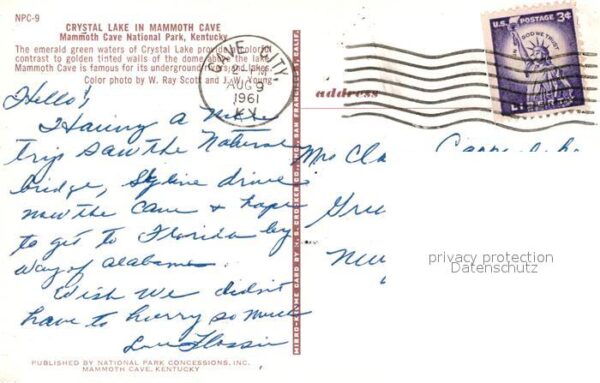 NPC-9
CRYSTAL LAKE IN MAMMOTH CAVE
Mammoth Cave National Park, Kentucky
The emerald green waters of Crystal Lake provide a colorful
contrast to golden tinted walls of the dome above the lake.
Mammoth Cave is famous for its underground rivers and lakes.
Color photo by W. Ray Scott and J. W. Young
CAVE CITY
2 PM
AUG 9
1961
KY.
U.S. POSTAGE 3¢
IN GOD WE TRUST
LIBERTY
address
Hello!
Having a nice
trip saw the Natural
bridge, Skyline drive
now the cave & hope
to get to Florida by
way of Alabama.
Wish we didn't
have to hurry so much
Love Flossie
Mrs Cla
Gre
New
privacy protection
Datenschutz
MIRRO-KROME CARD BY H. S. CROCKER CO., INC., SAN FRANCISCO 1, CALIF.
PUBLISHED BY NATIONAL PARK CONCESSIONS, INC.
MAMMOTH CAVE, KENTUCKY